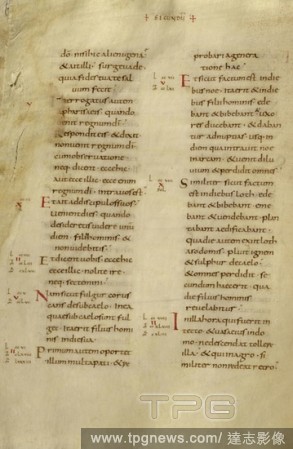 + SECUNDU +
do · nisihic alienigena
& aitilli · surge uade ·
quia fides tua te sal
uum fecit
Interrogatus autem
pharisaeis · quando
uenit regnum di
respondit eis & dixit
non uenit regnum di
cum obseruatione
neq · dicent · ecce hic
aut ecce illic · ecce enim
regnum di · intra uos est
Et ait ad discipulos suos
uenient dies · quando
desideretis uidere unu
diem · filii hominis · &
non uidebitis ·
Et dicent uobis · ecce hic
ecce illic · nolite ire ·
neq · sectemini ·
Nam sicut fulgor corus
cans de sub caelo · in ea
quae sub caelo sunt ful
get · ita erit filius homi
nis · in die sua ·
Primum autem oport&
illum multa pati · & re
probari a genera
tione hac ·
Et sicut factum est · in die
bus noe · ita erit & in die
bus filii hominis · ede
bant & bibebant · uxo
res ducebant · & daban
tur ad nuptias · usq · in
diem qua intrauit · noe
in arcam · & uenit dilu
uium · & perdidit omnes ·
Similiter sicut factum est
in diebus loth · ede
bant & bibebant · eme
bant & uendebant · plan
tabant · aedificabant ·
qua die autem exiit loth
a sodomis · pluit ignem
& sulphur de caelo ·
& omnes perdidit · se
cundum haec erit · qua
die filius hominis
reuelabitur ·
In illa hora qui fuerit in
tecto · & uasa eius in do
mo · ne descendat tolle re
illa · & qui in agro · si
militer non redeat retro ·
TPG
www.tpgnews.com / 達志影像